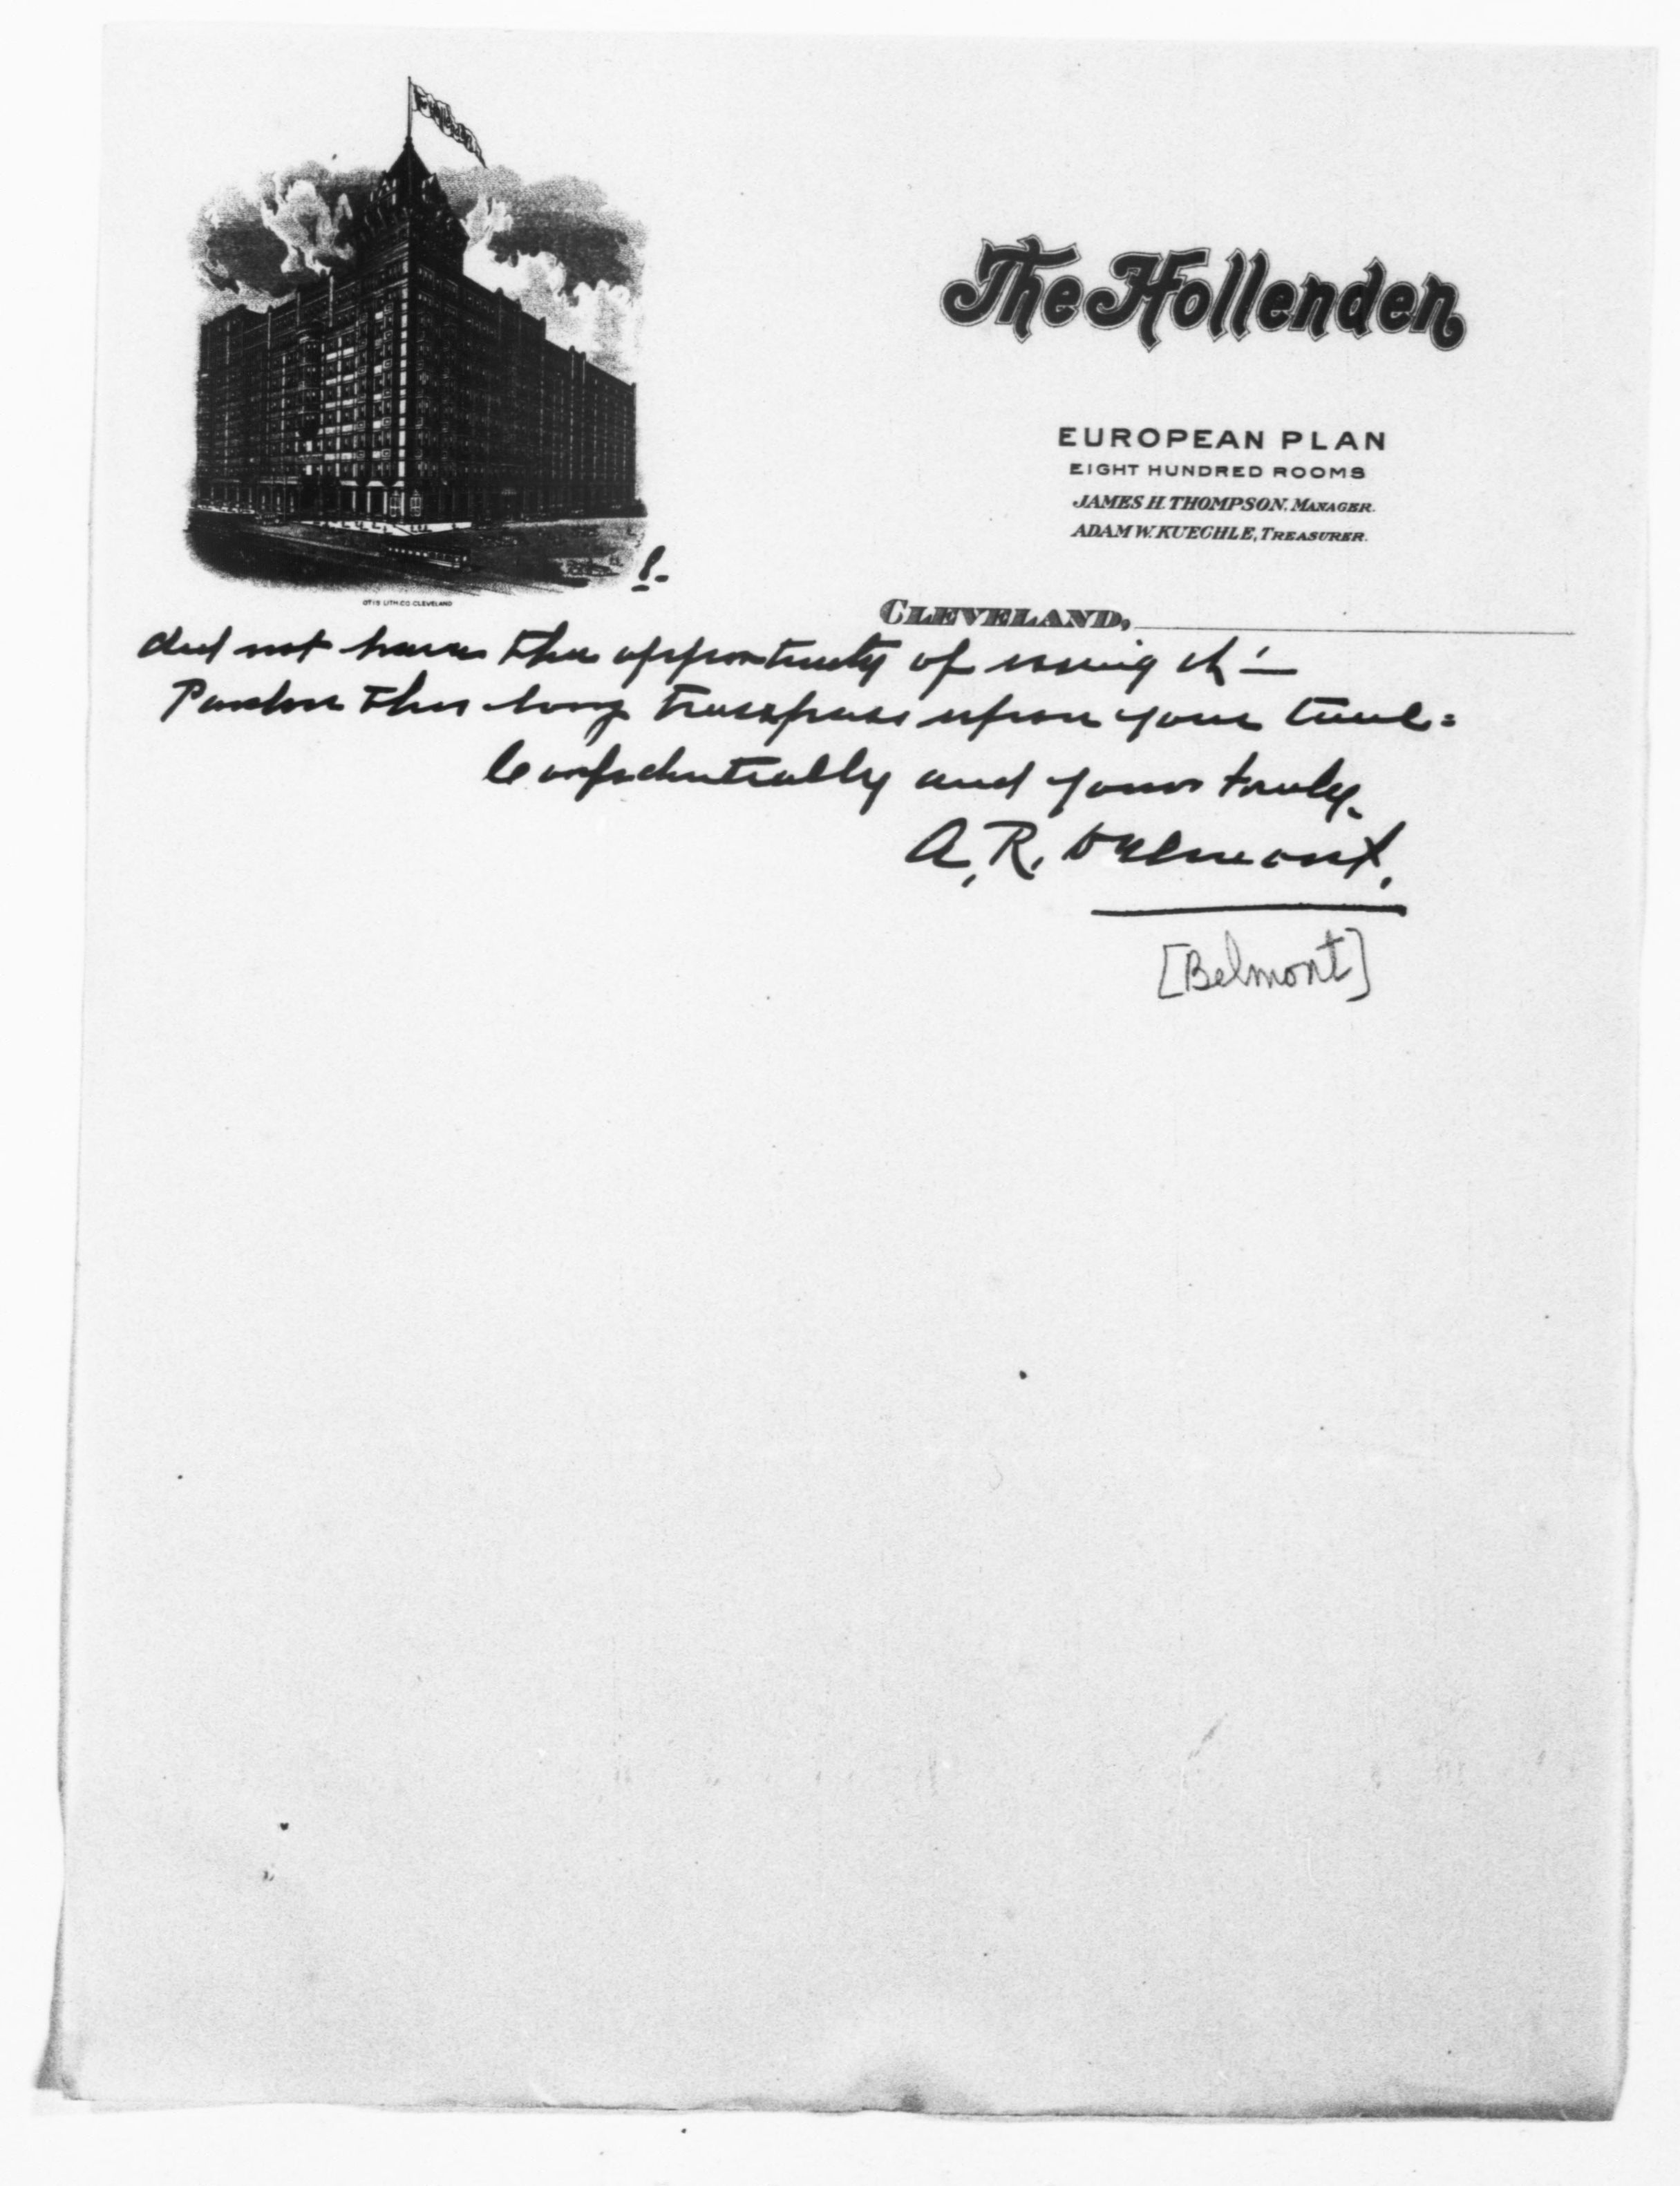 The Hollenden
EUROPEAN PLAN
EIGHT HUNDRED ROOMS
JAMES H. THOMPSON, MANAGER.
ADAM W. KUECHLE, TREASURER.
OTIS LITH. CO. CLEVELAND
8-
CLEVELAND,
did not have the opportunity of using it! —
Pardon this long trespass upon your time =
Confidentially and yours truly.
A. R. Belmont.
[Belmont]